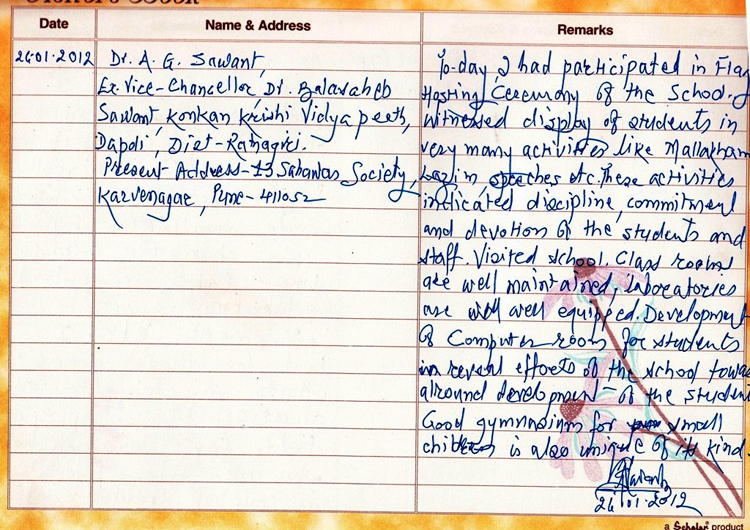 Date
Name & Address
Remarks
26.01.2012
Dr. A. G. Sawant,
Ex. Vice-Chancellor, Dr. Balasaheb
Sawant Konkan Krishi Vidyapeeth,
Dapoli, Dist-Ratnagiri.
Present Address-13 Sahawas Society,
Karvenagar, Pune-411052
To-day, I had participated in Flag
Hosting Ceremony of the School.
Witnessed display of students in
very many activities like Mallakham
Lezim, speeches etc. These activities
indicated discipline, commitment
and devotion of the students and
staff. Visited school. Class rooms
are well maintained, laboratories
are well equipped. Development
of Computer room for students
reveal efforts of the school towa
allround development of the student
Good gymnasium for small
children is also unique of its kind.
26/01/2012
a Scholar product